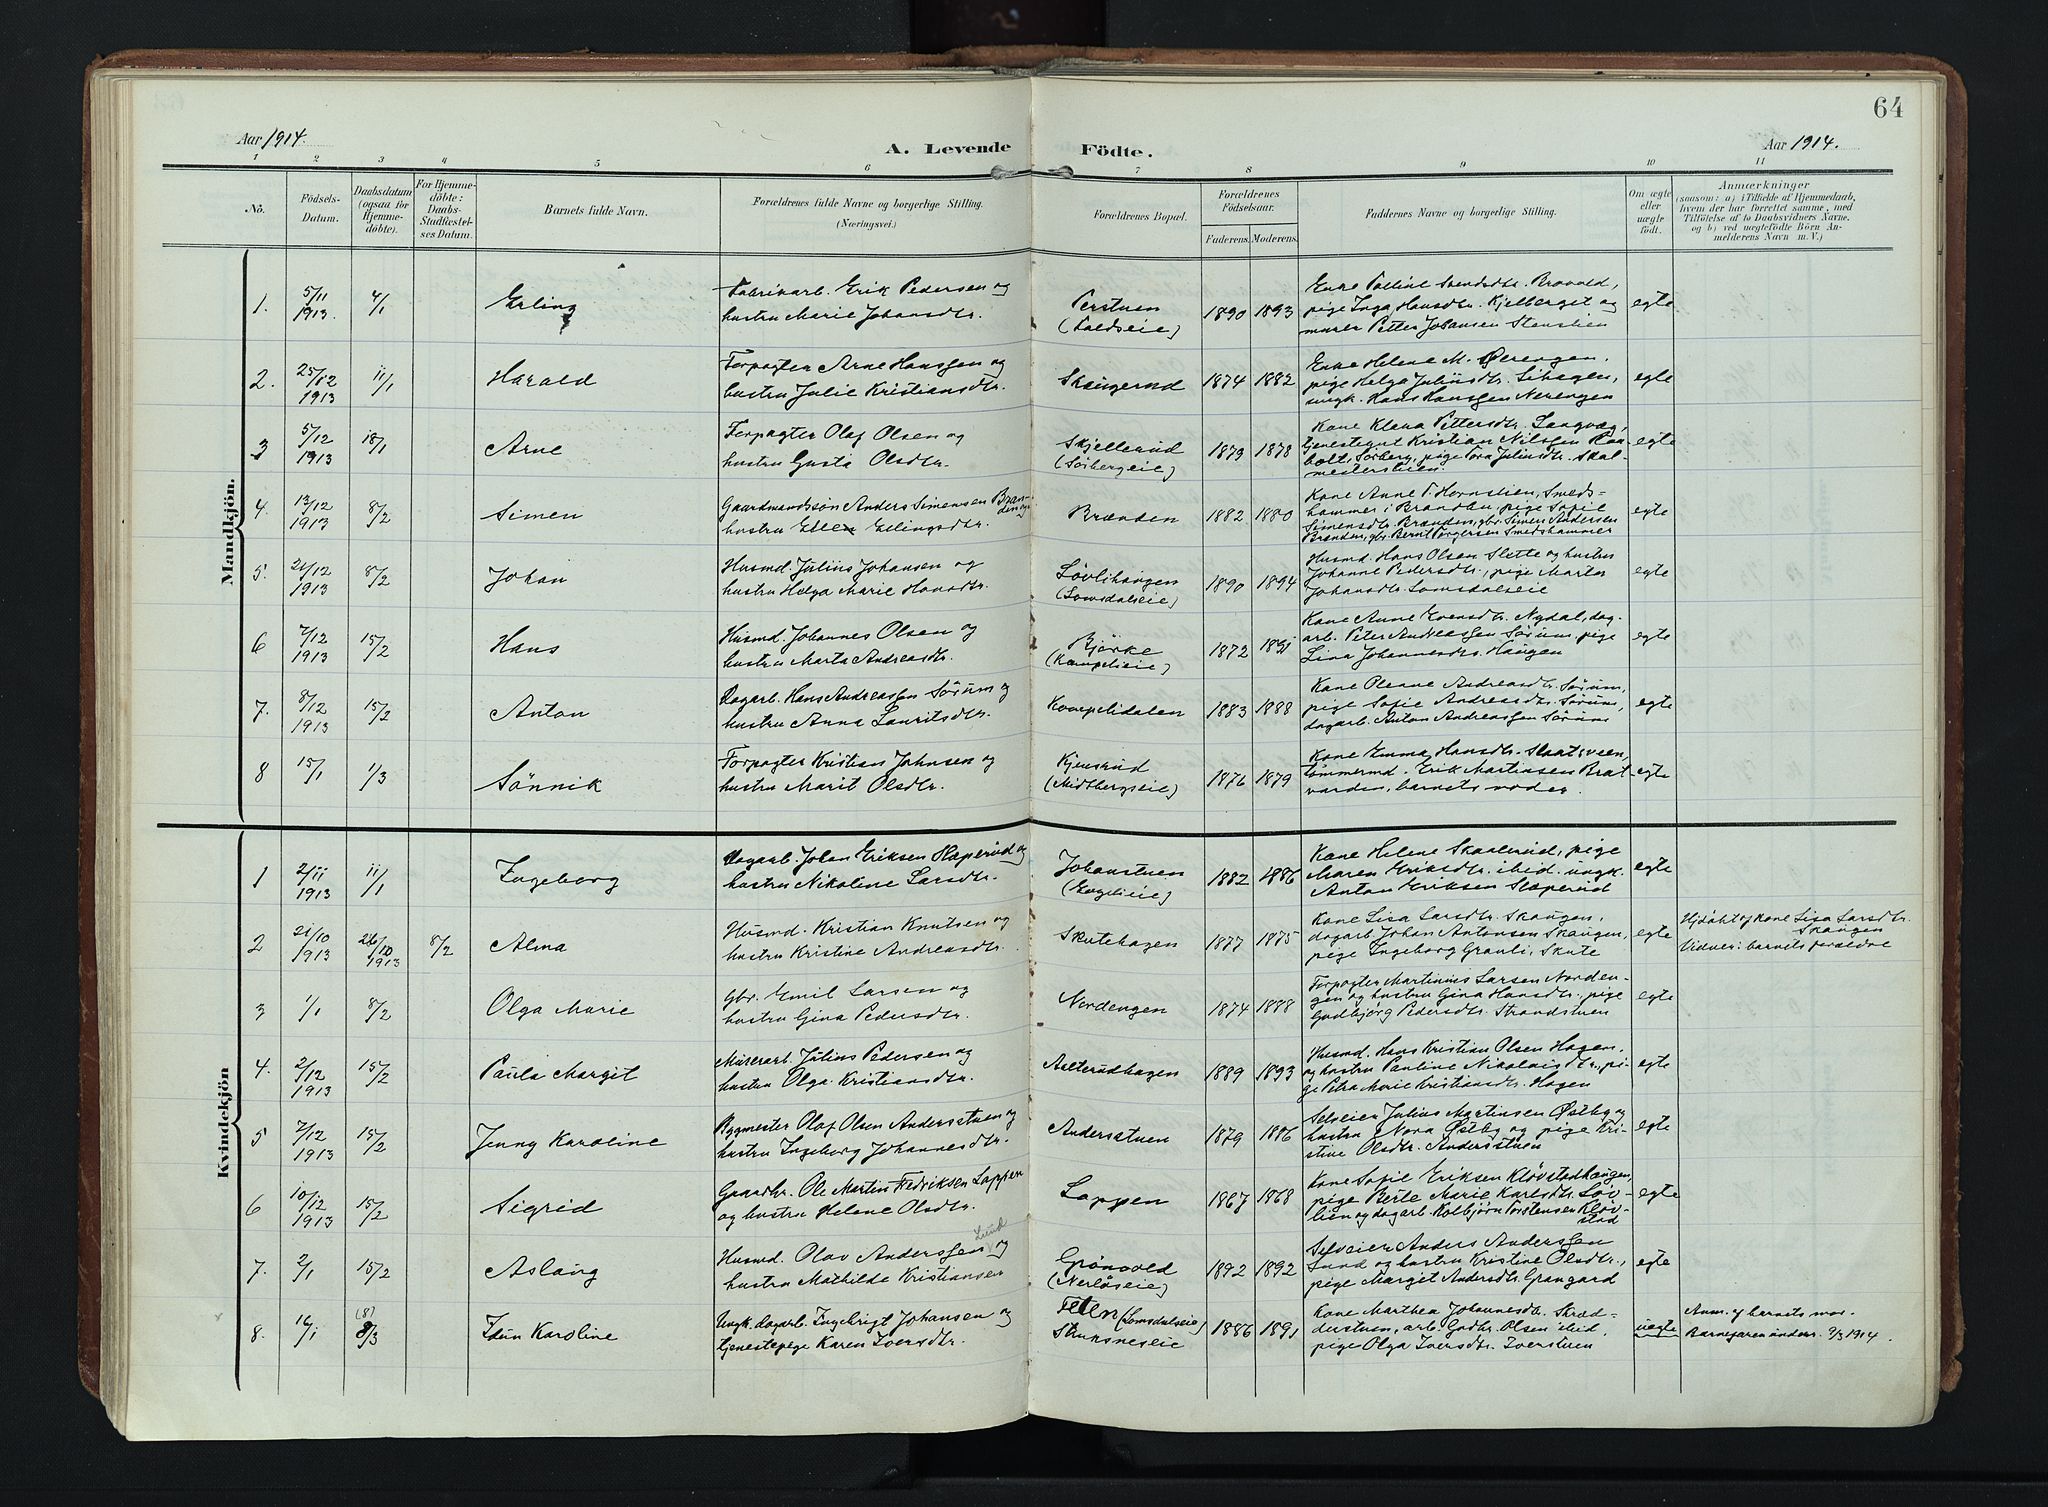 64
Aar 1914.
A. Levende Födte.
Aar 1914.
1 2 3 4 5 6 7 8 9 10 11
No.
Födsels-
Datum.
Daabsdatum
(ogsaa for
Hjemme-
döbte).
For Hjemme-
döbte:
Daabs-
Stadfæstel-
ses Datum.
Barnets fulde Navn.
Forældrenes fulde Navne og borgerlige Stilling.
(Næringsvei.)
Forældrenes Bopæl.
Forældrenes
Födselsaar.
Faderens. Moderens.
Faddernes Navne og borgerlige Stilling.
Om ægte
eller
uægte
födt.
Anmærkninger
(saasom: a) i Tilfælde af Hjemmedaab,
hvem der har forrettet samme, med
Tilföielse af to Daabsvidners Navne.
og b) ved uægtefödte Börn An-
melderens Navn m. V.)
Mandkjön.
1. 5/11 1913. 4/1 Erling
Fabrikarb. Erik Pedersen og
hustru Marie Johansdtr.
Perstuen
1890 1893
pige Inga Hansdtr. Kjelberget og
murer Petter Johansen Stenslien
egte
2. 25/12 1913 11/1 Harald
Forpagter Arne Hanssen og
hustru Julie Kristiansdtr.
Skaugerud
1874 1882
Enke Helene M. Øverengen.
pige Helga Juliusdtr. Lihagen,
ungk. Hans Hanssen Nerengen
egte
3 5/12 1913 18/1 Arne
Forpagter Olaf Olsen og
hustru Gusta Olsdtr.
Skjellerud
(Sørbergseie)
1879 1878
Kone Klara Pettersdtr. Langvæg,
tjenestegut Kristian Nilssen Ron-
bolt, Sørberg, pige Tora Juliusdtr. Skol-
mesterstuen.
egte
4. 13/12 1913 8/2 Simen
Gaardmandssøn Anders Simensen Bræn-
den og
hustru Ellen Erlingsdtr.
Brænden
1882 1880
Kone Anne T. Hornslien, Smeds-
hammer i Brandbu, pige Sofie
Simensdtr. Brænden, gbr. Simen Andersen
Brænden, gbr. Bernt Torgersen Smedshammer
egte
5. 21/12 1913 8/2 Johan
Husmd. Julius Johansen og
hustru Helga Marie Hansdtr.
Løvlihaugen
(Lomsdalseie)
1890 1894
Husmd. Hans Olsen Slette og hustru
Johanne Pedersdtr., pige Marta
Johansdtr. Lomsdalseie
egte
6 7/12 1913 15/2 Hans
Husmd. Johannes Olsen og
hustru Marta Andreasdtr.
Bjørke
(Kompelieie)
1872 1891
Kone Anne Evensdtr. Nydal, dag-
arb. Peter Andreassen Sørum, pige
Lina Johannesdtr. Haugen
egte
7. 8/12 1913 15/2 Anton
Dagarb. Hans Andreassen Sørum og
hustru Anna Lauritsdtr.
Kompelidalen
1883 1888
Kone Oleane Andreasdtr. Sørum,
pige Sofie Andreasdtr. Sørum,
dagarb. Anton Andreassen Sørum
egte
8 15/1 1/3 Sønnik
Forpagter Kristian Johnsen og
hustru Marit Olsdtr.
Kjensrud
(Midtbergseie)
1876 1879
Kone Emma Hansdtr. Slaatsveen,
tømmermd. Erik Martinsen Brat-
vorden, barnets moder.
egte
Kvindekjön
1 2/11 1913 11/1 Ingeborg
Dagarb. Johan Eriksen Slaperud og
hustru Nikoline Larsdtr.
Johanstuen
(Engelieie)
1882 1886
Kone Helene Skaalerud, pige
Maren Eriksdtr. ibid. ungk.
Anton Eriksen Slaperud
egte
2 21/10 1913 26/10 1913 8/2 Alma
Husmd. Kristian Knutsen og
hustru Kristine Andreasdtr.
Skutehagen
1877 1875
Kone Lisa Larsdtr. Skaugen,
dagarb. Johan Antonsen Skaugen,
pige Ingeborg Granli, Skute
egte
Hjdøbt af Kone Lisa Larsdtr.
Skaugen
Vidner: barnets forældre
3 1/1 8/2 Olga Marie
Gbr. Emil Larsen og
hustru Gina Pedersdtr.
Nordengen
1874 1888
Forpagter Martinius Larsen Norden-
gen og hustru Gina Hansdtr. pige
Gudbjørg Pedersdtr. Strandstuen
egte
4. 2/12 1913 15/2 Paula Margit
Murerarb. Julius Pedersen og
hustru Olga Kristiansdtr.
Aelterudhagen
1889 1893
Husmd. Hans Kristian Olsen Hagen,
og hustru Pauline Nikolaisdtr., pi-
ge Petra Marie Kristiansdtr. Hagen
egte
5 7/12 1913 15/2 Jenny Karoline
Bygmester Olaf Olsen Andersstuen og
hustru Ingeborg Johannesdtr.
Andersstuen
1879 1886
Selveier Julius Martinsen Østby og
hustru Nora Østby og pige Kri-
stine Olsdtr. Andersstuen
egte
6 10/12 1913 15/2 Sigrid
Gaardbr. Ole Martin Fredriksen Lappen
og hustru Helene Olsdtr.
Lappen
1867 1868
Kone Sofie Eriksen Kløvstadhaugen,
pige Berte Marie Karlsdtr. Løv-
lien og dagarb. Kolbjørn Torstensen Kløv-
stad
egte
7. 2/1 15/2 Aslaug
Lund
Husmd. Olav Anderssen og
hustru Mathilde Kristiansen
Grønvold
(Nerløseie)
1892 1892
Selveier Anders Anderssen
Lund og hustru Kristine Olsdtr.,
pige Margit Andersdtr. Grangard
egte
8. 16/1 (8) 8/3 Idun Karoline
Ungk. dagarb. Ingebrigt Johansen og
tjenestepige Karen Iversdtr.
Fetten (Lomsdalseie)
Struksneseie
1886 1891
Kone Marthea Johannesdtr. Skræd-
derstuen, arb. Gudbr. Olsen ibid,
pige Olga Iversdtr. Iverstuen
uegte
Anm. af barnets mor.
Barnefaren underr. 9/3 1914.